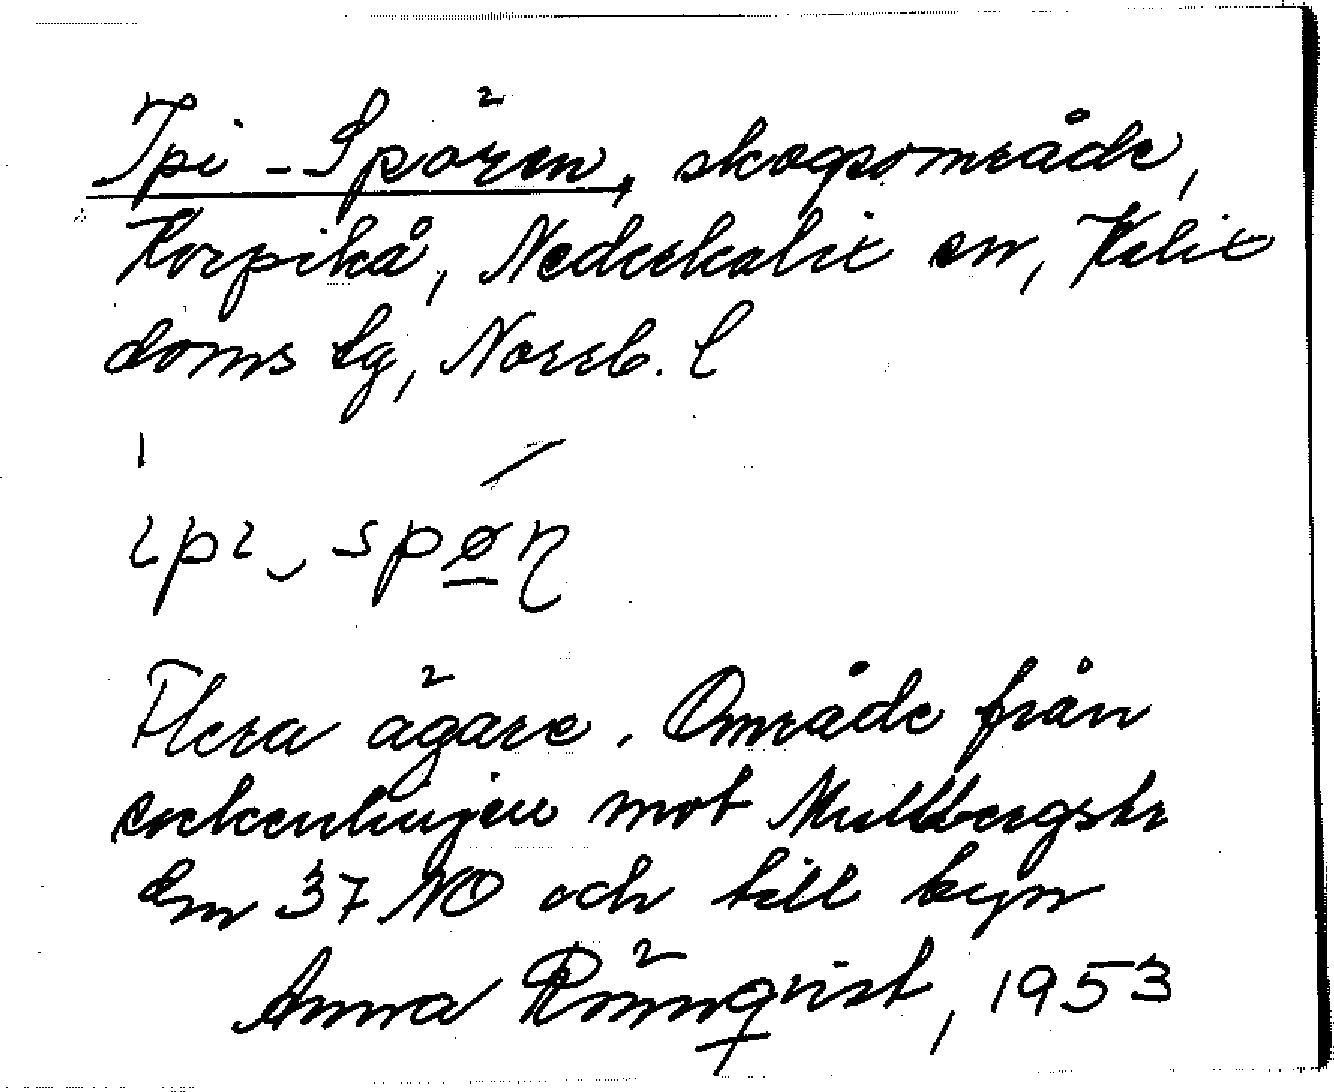 Ipi-Spören, skogsområde,
Korpikå, Nederkalix sn, Kalix
doms lg, Norrb. l
ipi‿spøn
Flera ägare. Område från
sockenlinjen mot Mullbergstr
Em 37 NO och till byn
Anna Rönnqvist, 1953